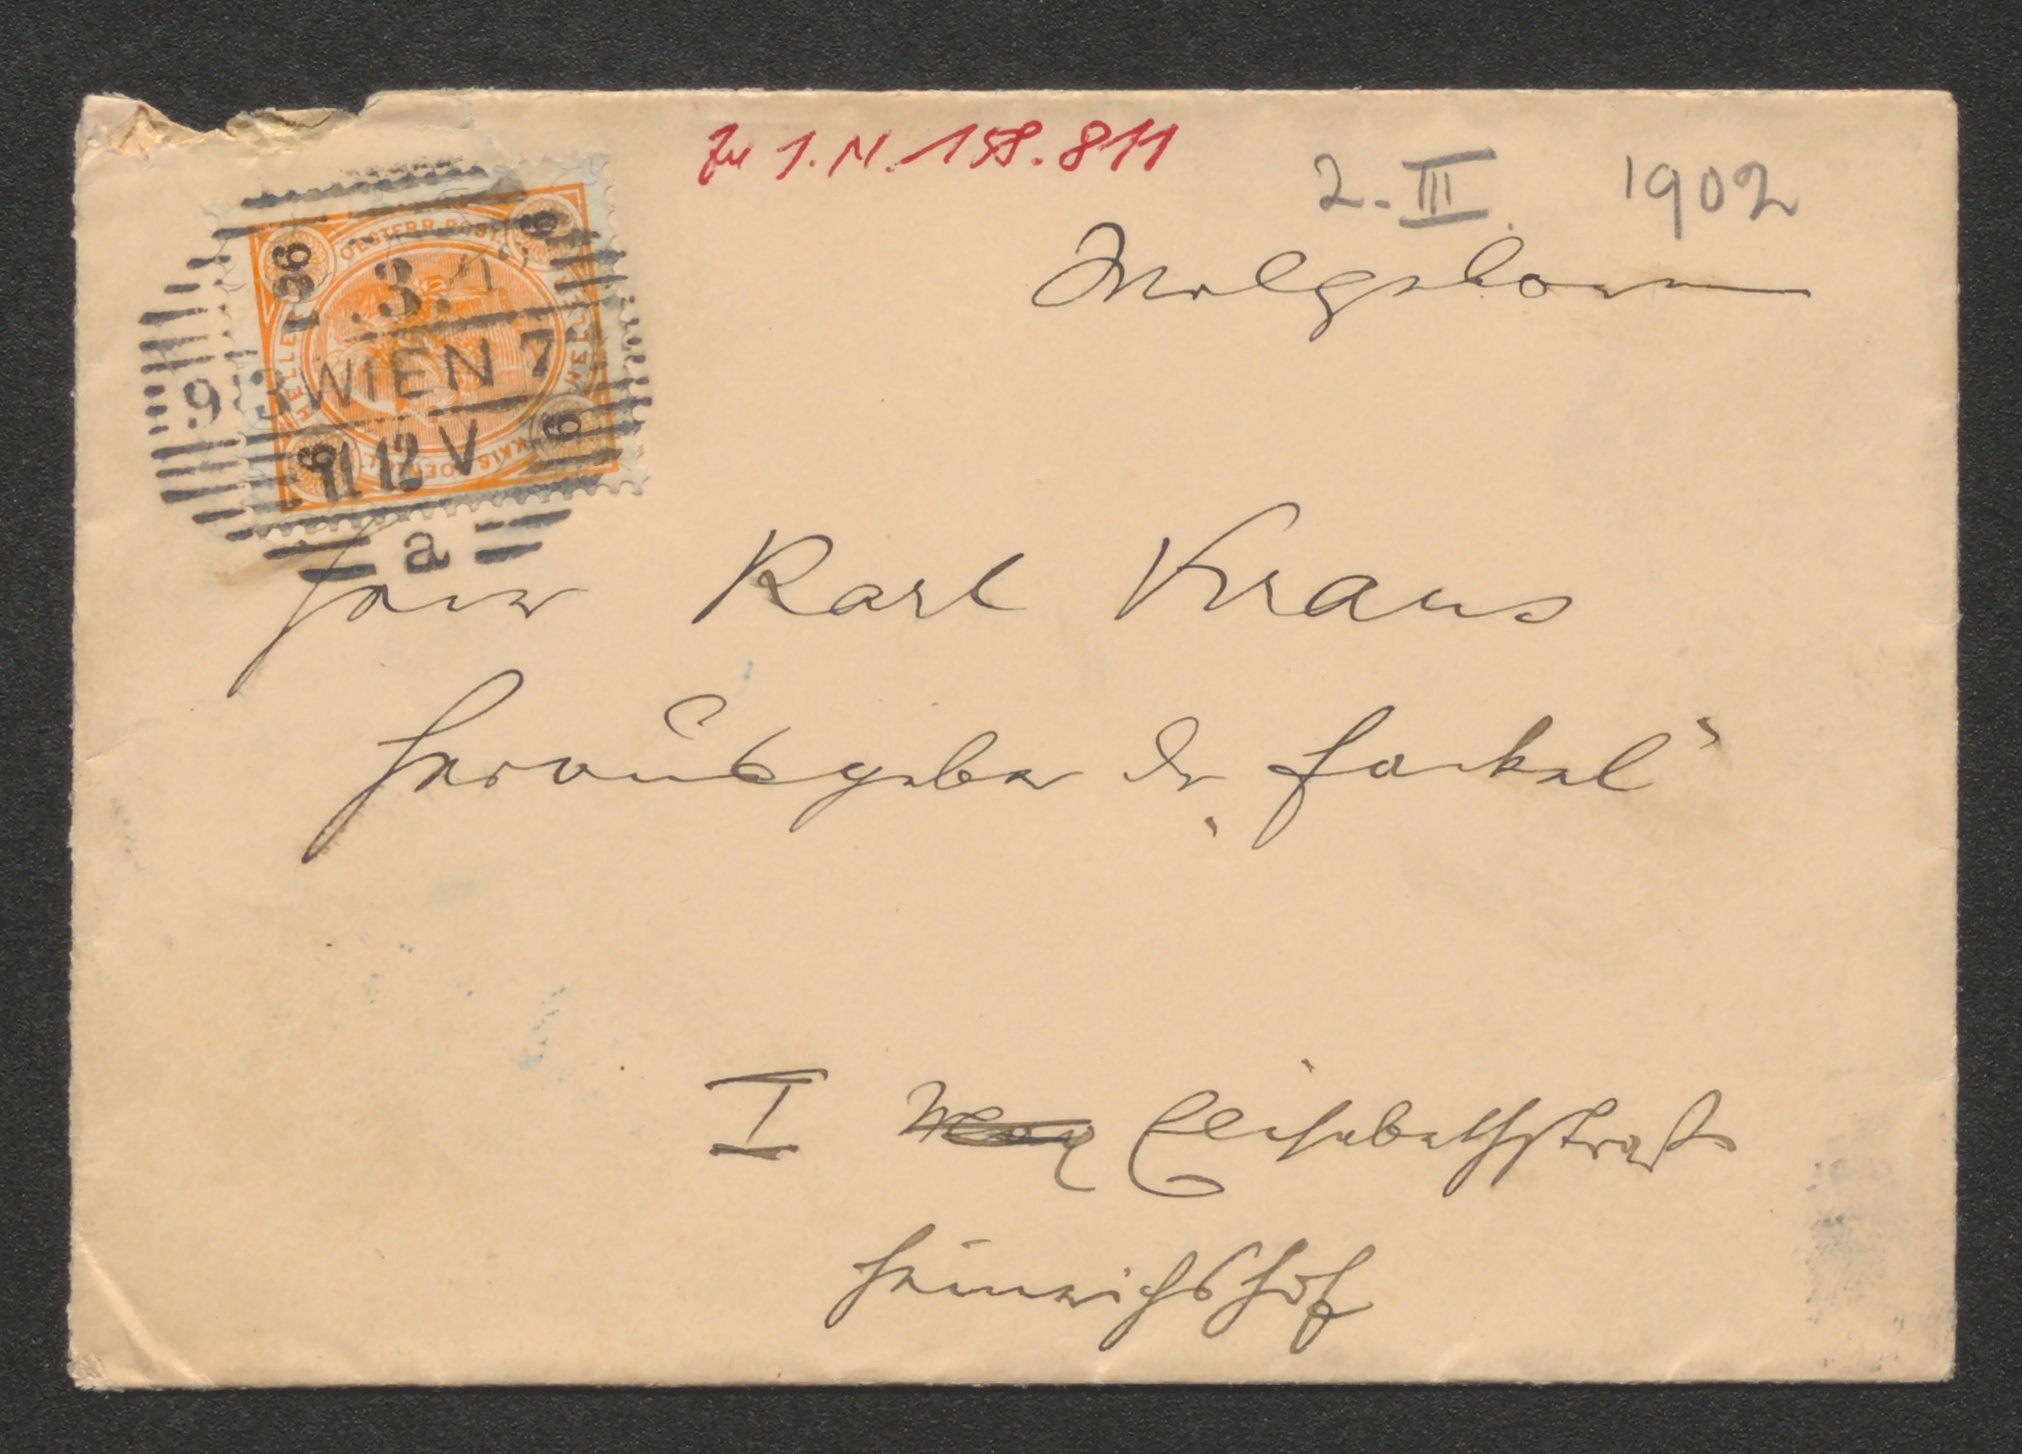 Zu I.N. 158.811
2. III. 1902
Wolgeboren
OESTERR. POST
6 6
HELLER HELLER
.3.
9/3 WIEN 7
6 6
11 12 V
a
Herrn Karl Kraus
Herausgeber der „Fackel“
I Elisabethstraße
Heinrichshof